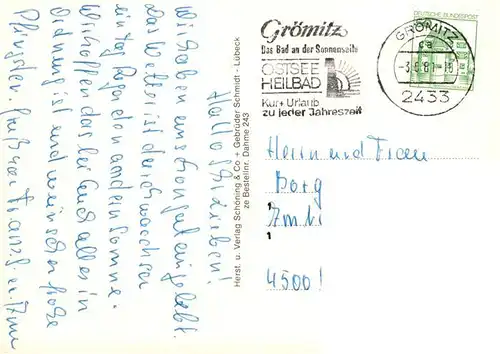 Hallo Ihr Lieben!
Wir haben uns schon gut eingelebt.
Das Wetter ist durchwachsen
ein tag Regen dann Sonne.
Wir hoffen das bei Euch alles in
Ordnung ist und wünschen frohe
Pfingsten.
Herst. u. Verlag Schöning & Co + Gebrüder Schmidt - Lübeck
ze Bestellnr. Dahme 243
Grömitz
Das Bad an der Sonnenseite
OSTSEE
HEILBAD
Kur + Urlaub
zu jeder Jahreszeit
GRÖMITZ
2433
DEUTSCHE BUNDESPOST
Herrn und Frau
Borg
4500!